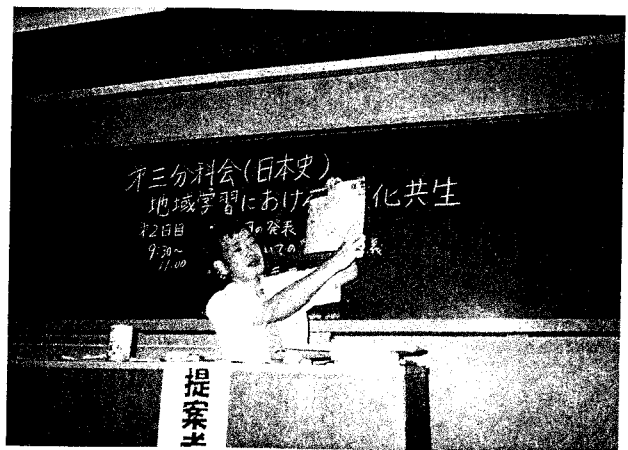 才三分科会(日本史)
地域学習におけ 化共生
才2日目 ・ の発表
9:30~ いての 義
11:00
提案者